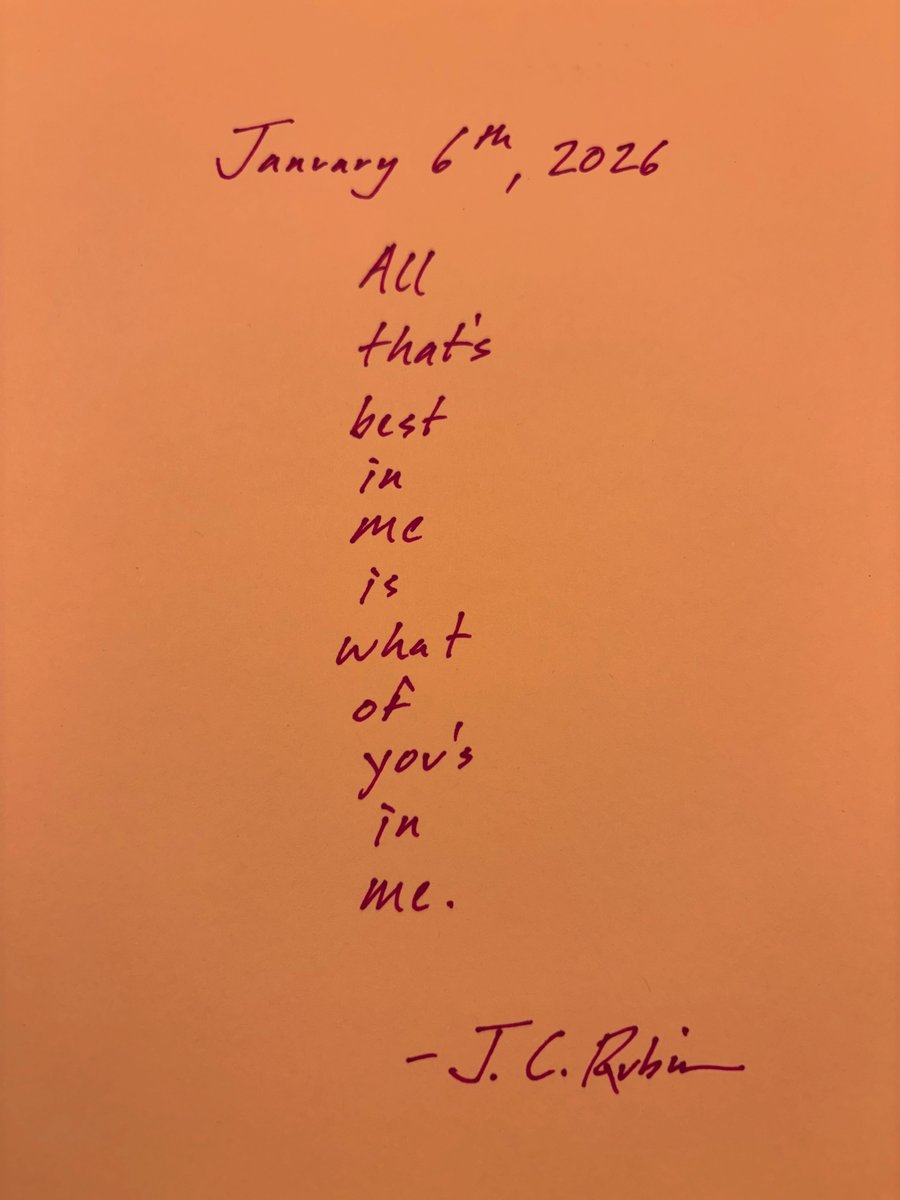 January 6th, 2026
All
that's
best
in
me
is
what
of
you's
in
me.
- J. C. Rubin